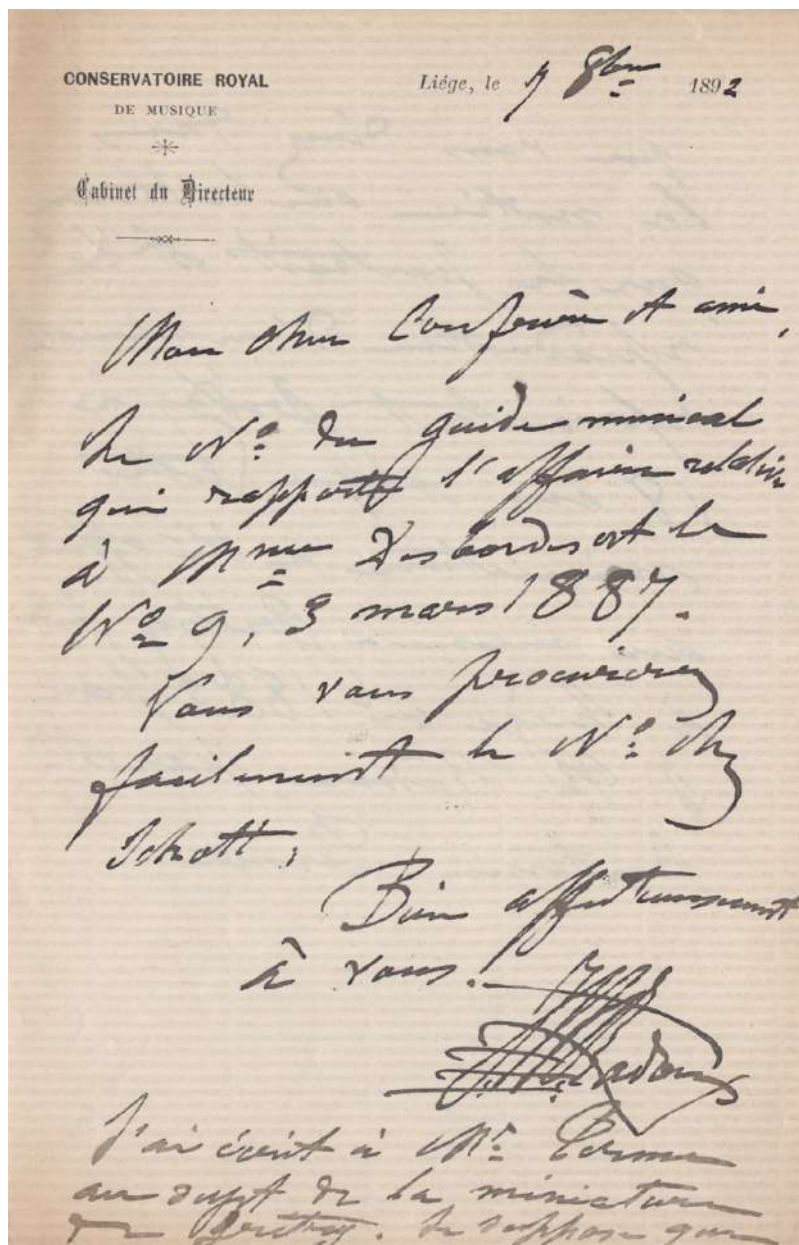 CONSERVATOIRE ROYAL
DE MUSIQUE
Cabinet du Directeur
Liége, le 7 8bre 1892
Mon cher Confrère et ami,
Le No. du guide musical
qui rapporte l'affaire relative
à Mme Desbordes est le
No 9, 3 mars 1887.
Vous vous procurerez
facilement le No. chez
Schott,
Bien affectueusement
à vous.
J'ai écrit à Mr.
au sujet de la miniature
de Grétry. Je suppose que